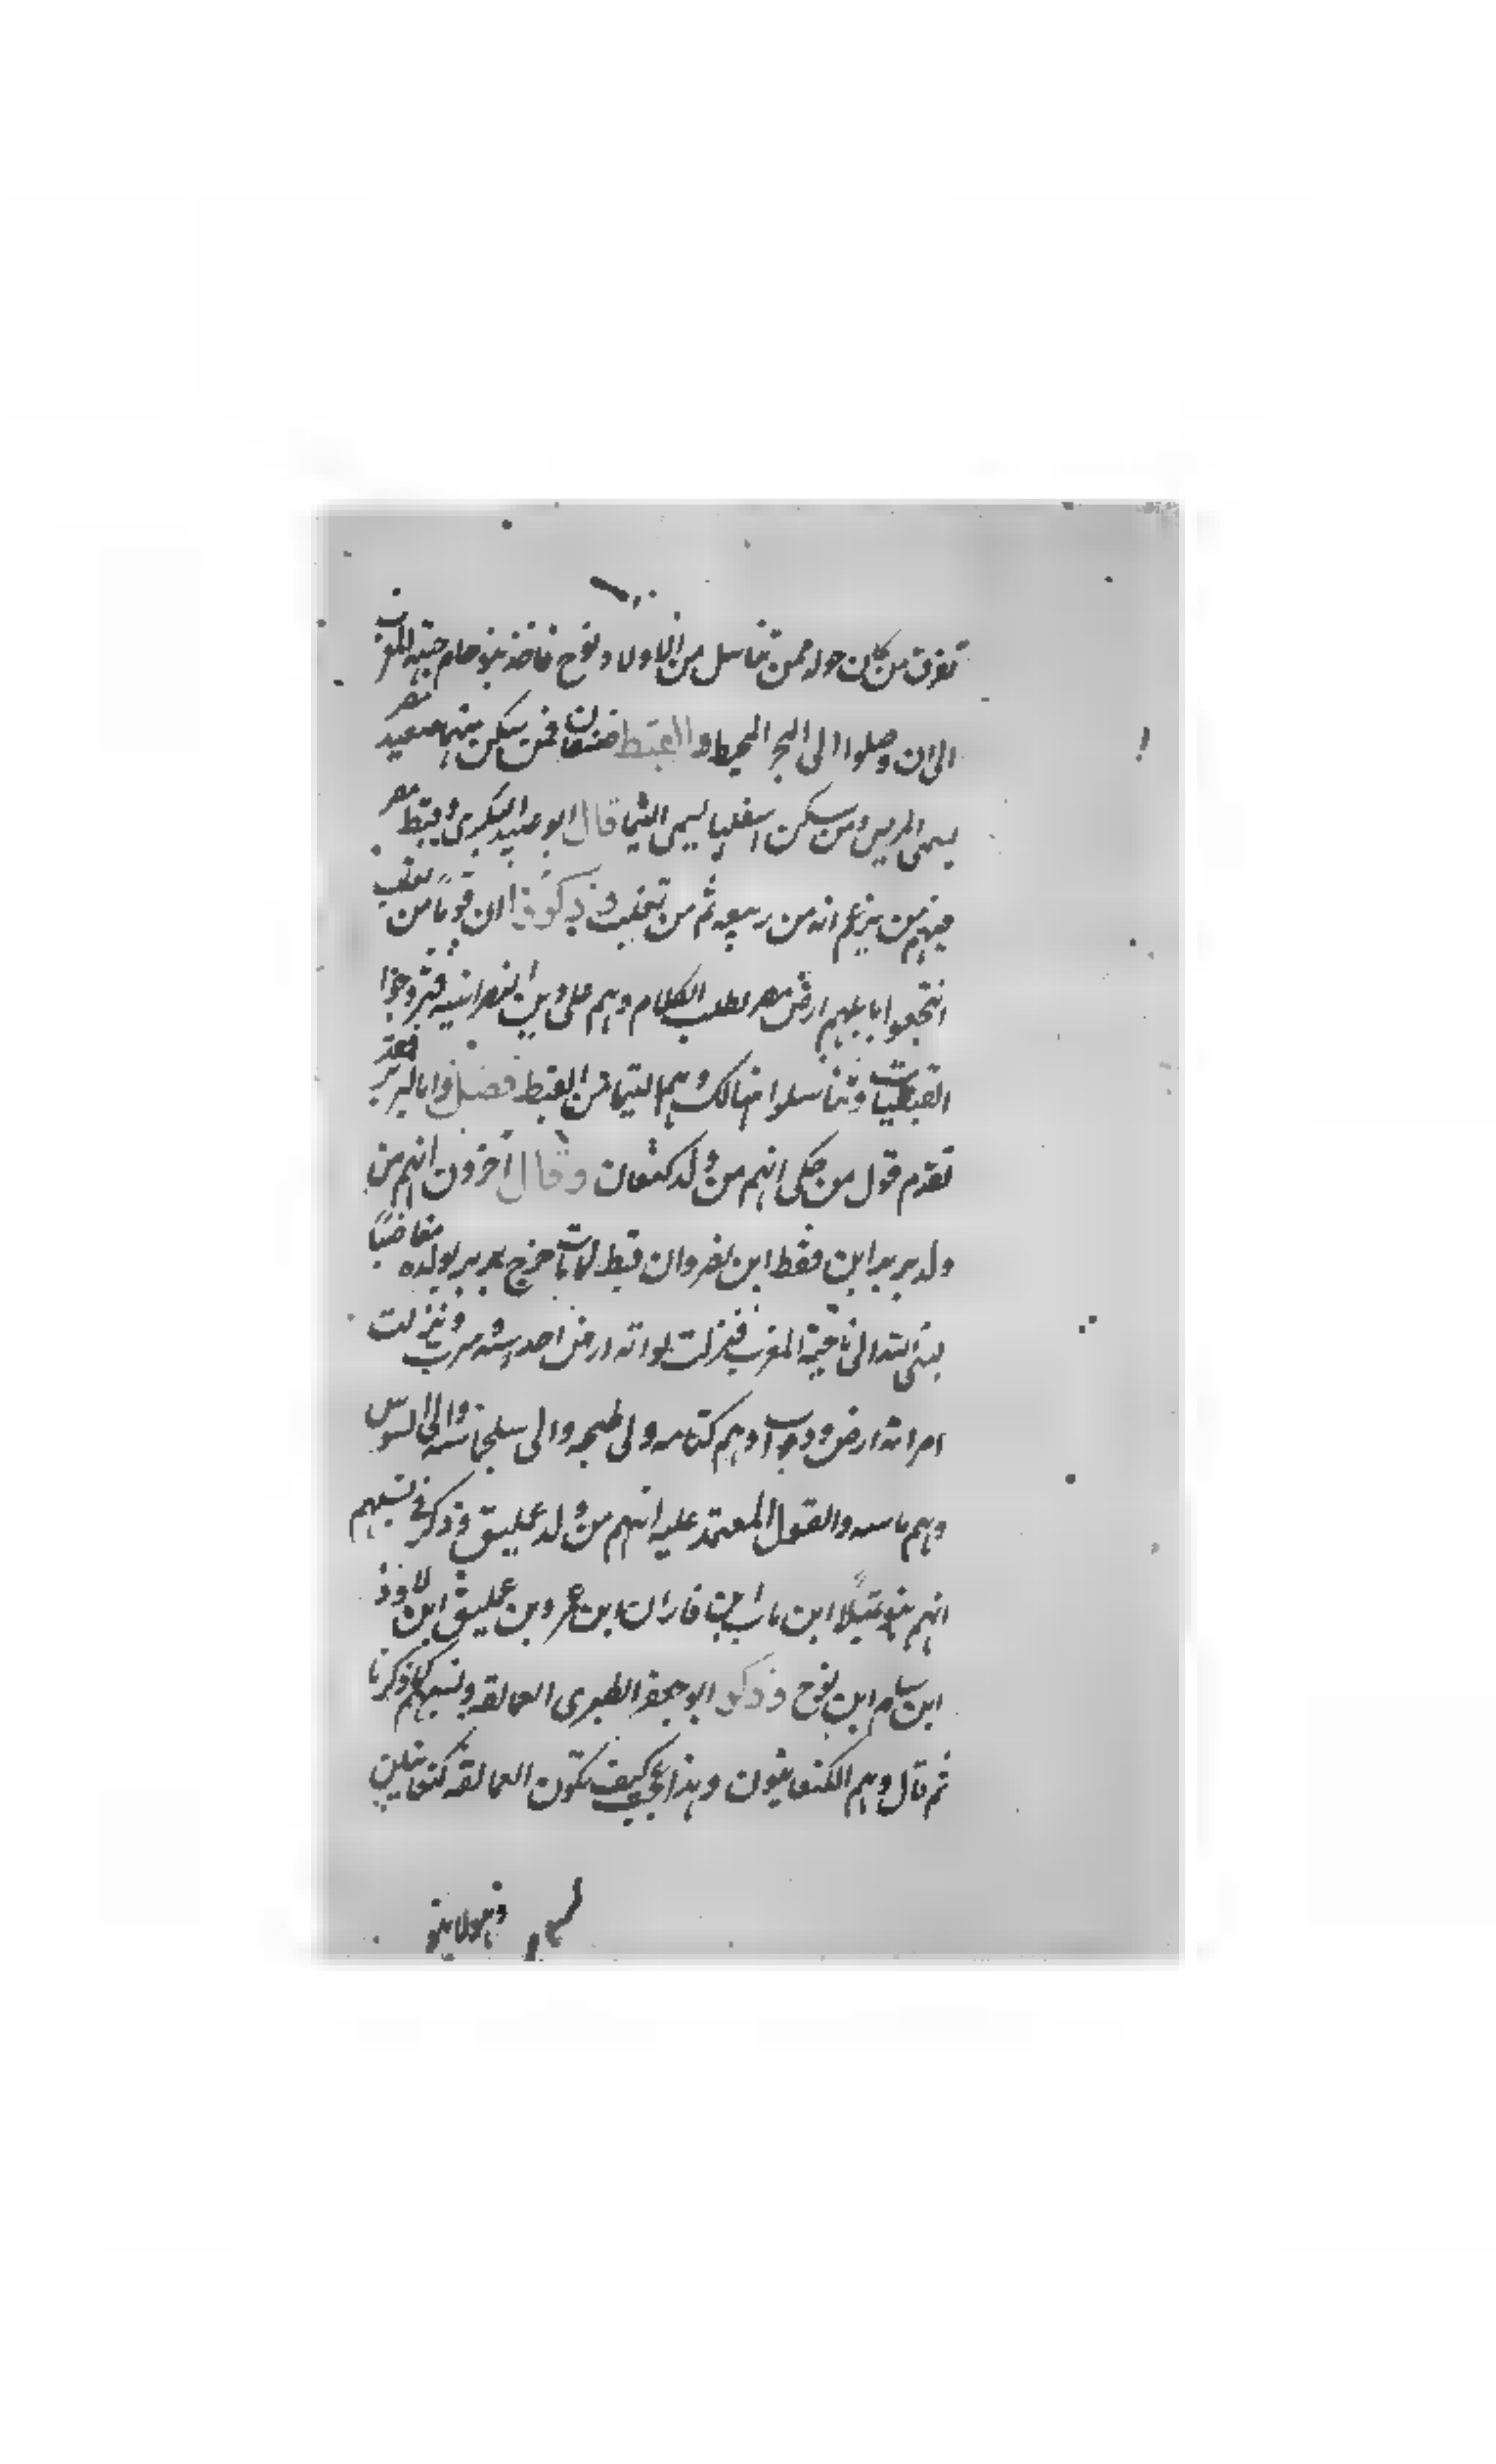 تفرق من كان حوله ممن تناسل من اولاد نوح فاخذ بنو حام جهة المغرب
الى ان وصلوا الى البحر المحيط والقبط صنفان فمن سكن منهم صعيد مصر
يسمى المريس ومن سكن اسفلها يسمى البيما قال ابو عبيد البكرى وقبط مصر
منهم من يزعم انه من ربيعه ثم من تغلب وذكروا ان قوما من تغلب
انتجعوا بابلهم ارض مصر لطلب الكلا وهم على دين النصرانيه فتزوجوا
القبطيات وتناسلوا هنالك وهم البيما من القبط فصل واما البربر فقد
تقدم قول من حكى انهم من ولد كنعان وقال آخرون انهم من
ولد بربر ابن قفط ابن وان قبط لما مات خرج بربر بولده مغاضبا
بنى الى ناحية المغرب فنزلت لواته ارض اجدابيه وسرت ونزلت
ارض ودان وهم كتامه والى طنجه والى سلجماسه والى السوس
وهم والقول المعتمد عليه انهم من ولد عمليق وذكر فى نسبهم
انهم بنو ابن مارب بن فاران ابن عمرو بن عمليق ابن لاوذ
ابن سام ابن نوح وذكر ابو جعفر الطبرى العمالقه ونسبهم كما ذكرنا
ثم قال وهم الكنعانيون وهذا عجيب كيف تكون العمالقه كنعانيين